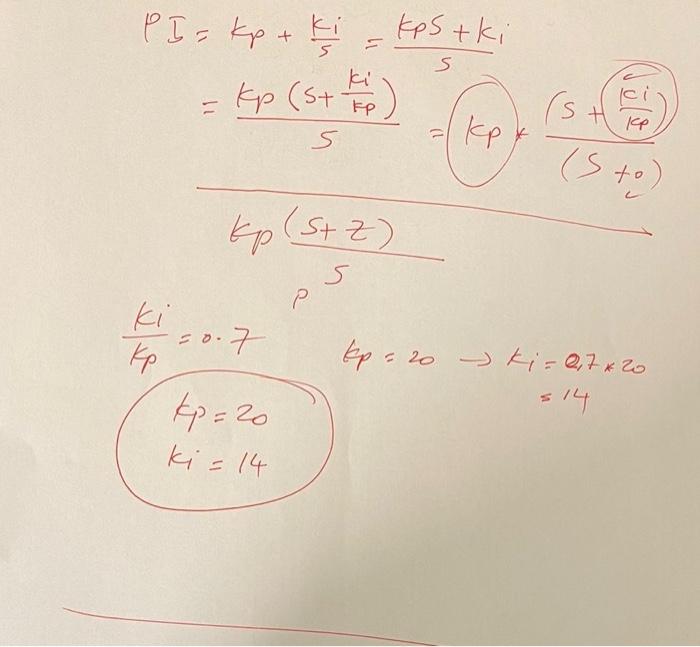 PI = kp + ki/s = kps + ki / s
= kp (s + ki/kp) / s = kp * (s + ki/kp) / (s + 0)
kp (s + z) / s
p
ki/kp = 0.7
kp = 20 → ki = 0,7 * 20
= 14
kp = 20
ki = 14